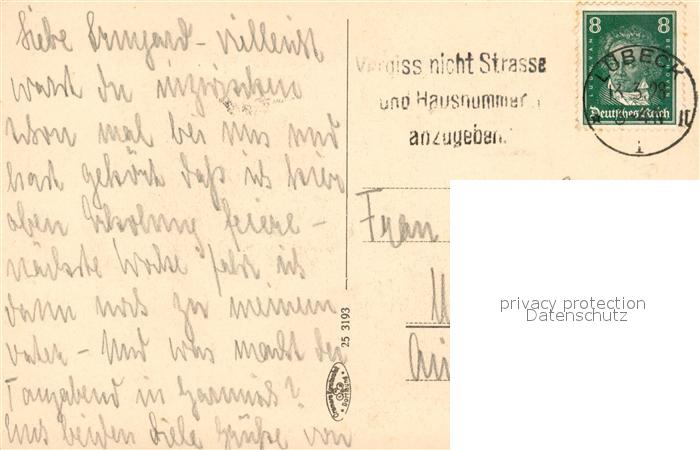 Liebe Irmgard – vielleicht
warst du inzwischen
schon mal bei uns und
hast gehört daß ich hier
oben Erholung feiere –
nächste Woche fahr ich
dann noch zu meinem
Vater – Und was macht der
Tanzabend in
Euch beiden viele Grüße von
Vergiss nicht Strasse
und Hausnummer
anzugeben.
8 8
LUDWIG VAN BEETHOVEN
Deutsches Reich
LÜBECK
1
Frau
25 3193
privacy protection
Datenschutz